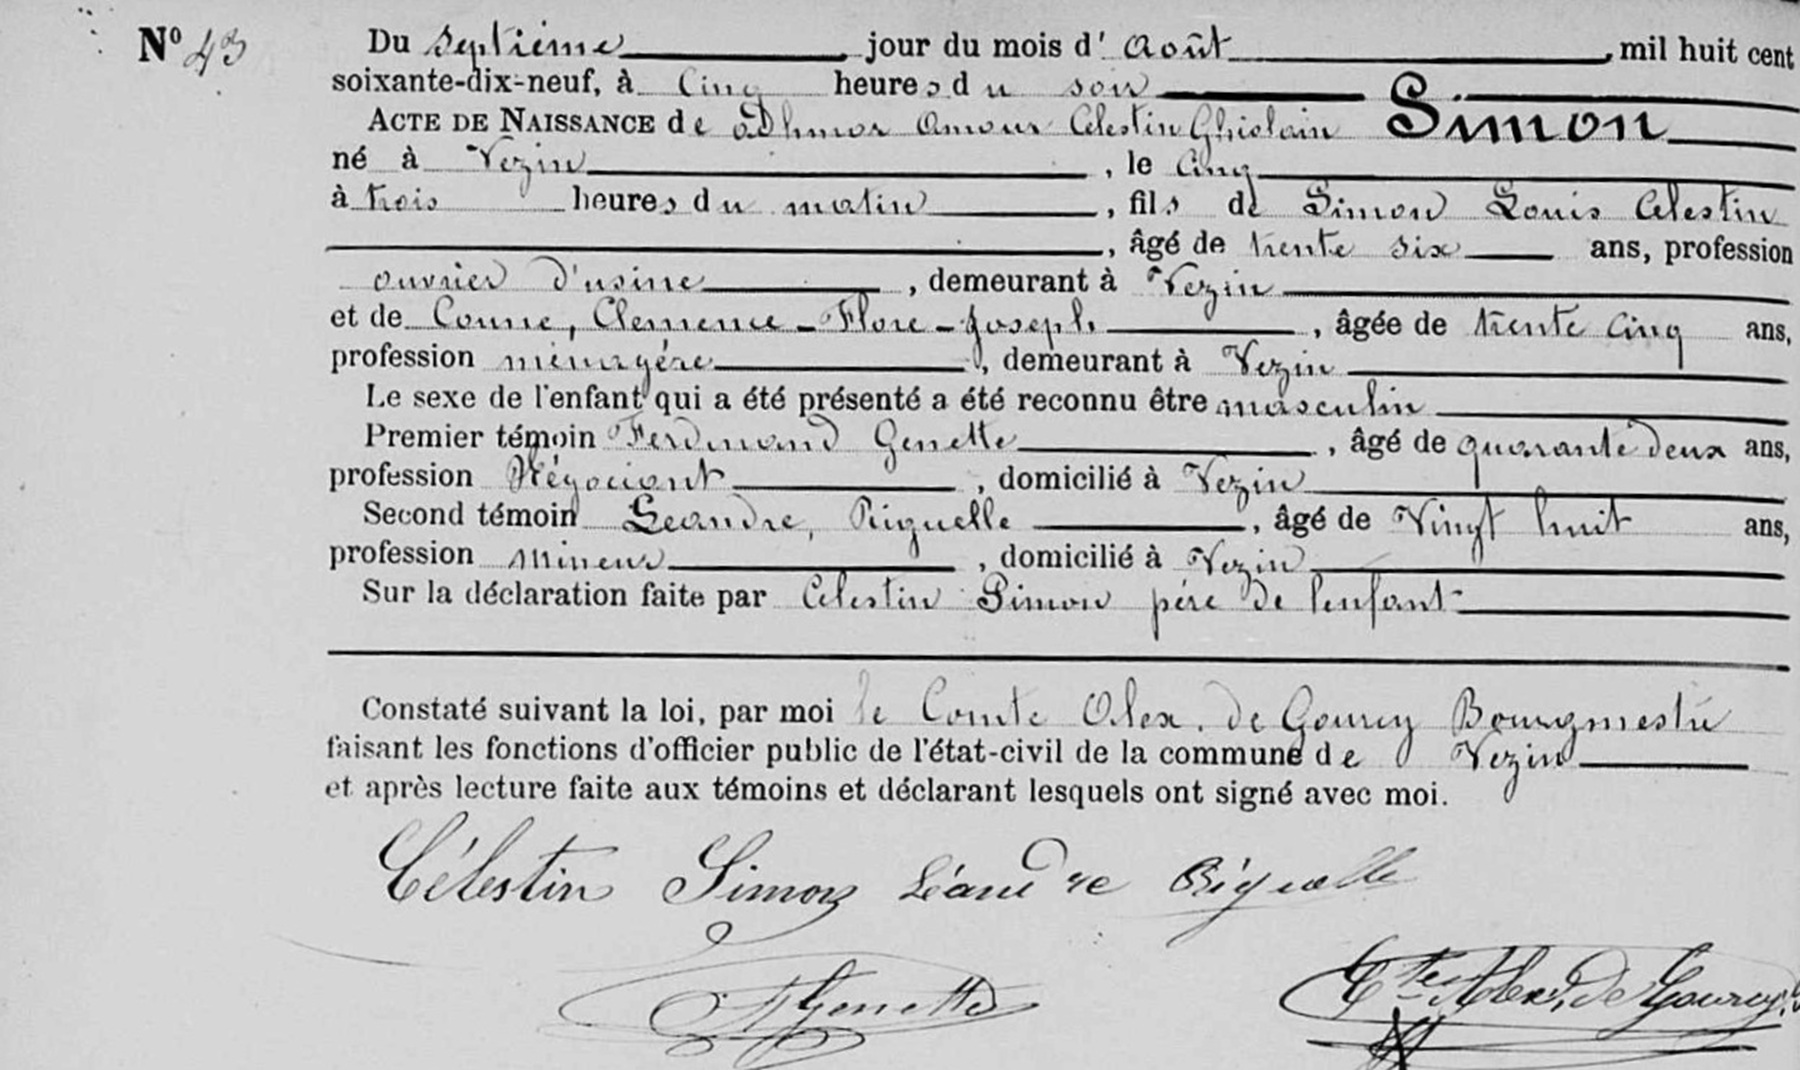 Nº 43
Du septième jour du mois d'août, mil huit cent
soixante-dix-neuf, à cinq heures du soir
ACTE DE NAISSANCE de Adhmar Amour Celestin Ghislain Simon
né à Vezin, le cinq
à trois heures du matin, fils de Simon Louis Celestin
, âgé de trente six ans, profession
ouvrier d'usine, demeurant à Vezin
et de Conne, Clemence-Flore-Joseph, âgée de trente cinq ans,
profession ménagére, demeurant à Vezin
Le sexe de l'enfant qui a été présenté a été reconnu être masculin
Premier témoin Ferdinand Genette, âgé de quarante deux ans,
profession Négociant, domicilié à Vezin
Second témoin Leandre, Riguelle, âgé de Vingt huit ans,
profession mineur, domicilié à Vezin
Sur la déclaration faite par Celestin Simon père de l'enfant
Constaté suivant la loi, par moi le Comte Alex. de Gourcy Bourgmestre
faisant les fonctions d'officier public de l'état-civil de la commune de Vezin
et après lecture faite aux témoins et déclarant lesquels ont signé avec moi.
Célestin Simon Léandre Riguelle
Genette Cte Alex. de Gourcy